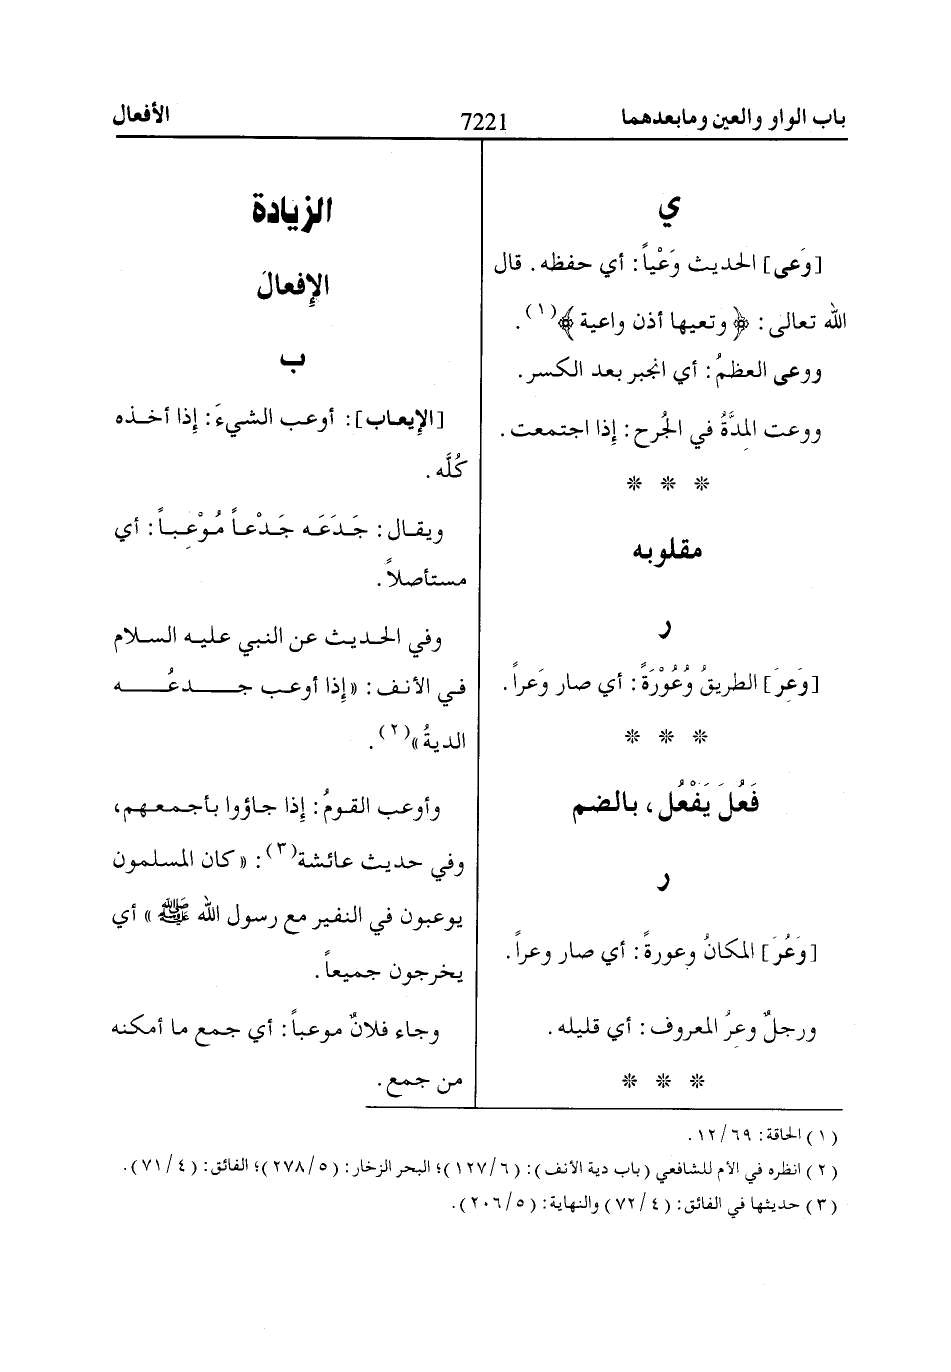 باب الواو والعين ومابعدهما
7221
الأفعال
ي
[وَعى] الحديث وَعْياً: أي حفظه. قال
الله تعالى: ﴿وتعيها أذن واعية﴾(١).
ووعى العظمُ: أي انجبر بعد الكسر.
ووعت المِدَّةُ في الجُرح: إذا اجتمعت.
* * *
مقلوبه
ر
[وَعِرَ] الطريقُ وُعُوْرَةً: أي صار وَعِراً.
* * *
فَعُلَ يَفْعُل، بالضم
ر
[وَعُرَ] المكانُ وعورةً: أي صار وعراً.
ورجلٌ وعِرُ المعروف: أي قليله.
* * *
الزيادة
الإِفعالَ
ب
[الإِيعاب]: أوعب الشيءَ: إِذا أخذه
كُلَّه.
ويقال: جَدَعَه جَدْعاً مُوْعِباً: أي
مستأصلاً.
وفي الحديث عن النبي عليه السلام
في الأنف: «إِذا أوعب جدعُه
الديةُ»(٢).
وأوعب القومُ: إِذا جاؤوا بأجمعهم،
وفي حديث عائشة(٣): «كان المسلمون
يوعبون في النفير مع رسول الله ﷺ» أي
يخرجون جميعاً.
وجاء فلانٌ موعباً: أي جمع ما أمكنه
من جمع.
(١) الحاقة: ٦٩/ ١٢.
(٢) انظره في الأم للشافعي (باب دية الأنف): (٦/ ١٢٧)؛ البحر الزخار: (٥/ ٢٧٨)؛ الفائق: (٤/ ٧١).
(٣) حديثها في الفائق: (٤/ ٧٢) والنهاية: (٥/ ٢٠٦).